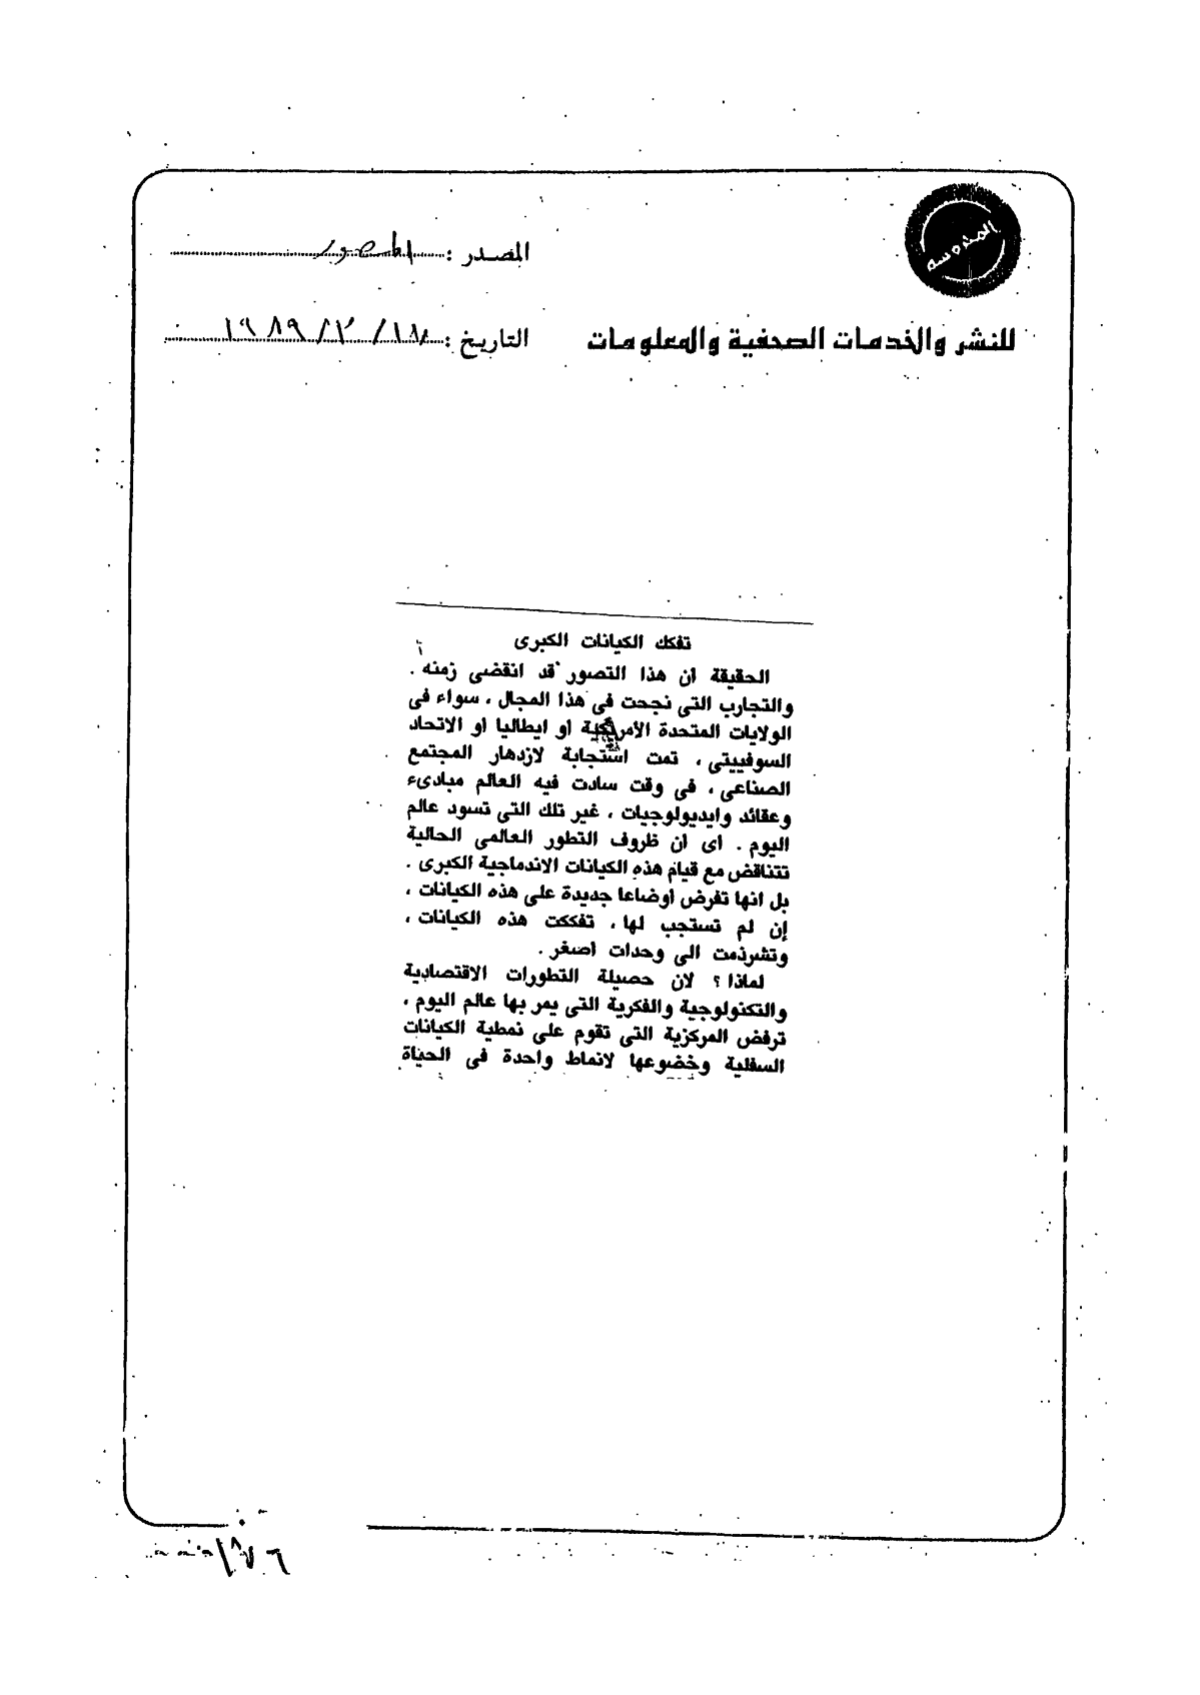 المحروسة
المصدر : المصور
للنشر والخدمات الصحفية والمعلومات
التاريخ : ١٨ / ٢ / ١٩٨٩
تفكك الكيانات الكبرى
الحقيقة ان هذا التصور قد انقضى زمنه .
والتجارب التى نجحت فى هذا المجال ، سواء فى
الولايات المتحدة الأمريكية او ايطاليا او الاتحاد
السوفييتى ، تمت استجابة لازدهار المجتمع
الصناعى ، فى وقت سادت فيه العالم مبادىء
وعقائد وايديولوجيات ، غير تلك التى تسود عالم
اليوم . اى ان ظروف التطور العالمى الحالية
تتناقض مع قيام هذه الكيانات الاندماجية الكبرى .
بل انها تفرض اوضاعا جديدة على هذه الكيانات ،
إن لم تستجب لها ، تفككت هذه الكيانات ،
وتشرذمت الى وحدات اصغر .
لماذا ؟ لان حصيلة التطورات الاقتصادية
والتكنولوجية والفكرية التى يمر بها عالم اليوم ،
ترفض المركزية التى تقوم على نمطية الكيانات
السفلية وخضوعها لانماط واحدة فى الحياة